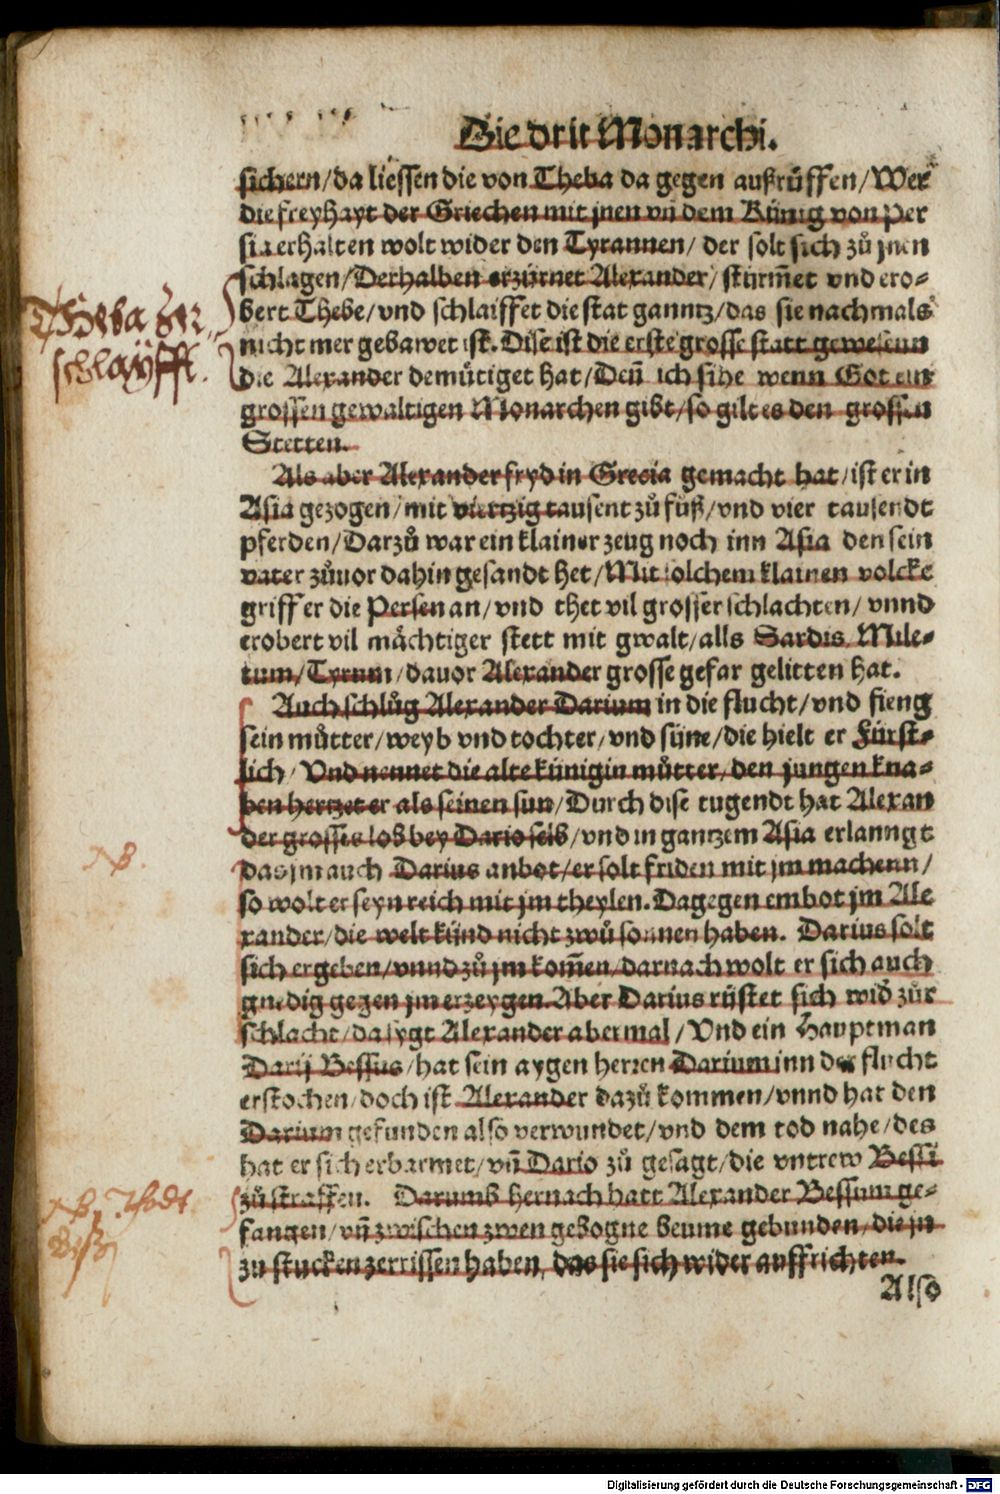 Die drit Monarchi.
sichern/da liessen die von Theba da gegen außrůffen/Wer
die freyhayt der Griechen mit jnen vñ dem Künig von Per
sia erhalten wolt wider den Tyrannen/ der solt sich zů jnen
schlagen/Derhalben erzürnet Alexander/ stürm̃et vnd ero-
bert Thebe/vnd schlaiffet die stat ganntz/das sie nachmals
nicht mer gebawet ist. Dise ist die erste grosse statt gewesenn
die Alexander demütiget hat/Deñ ich sihe wenn Got ein
grossen gewaltigen Monarchen gibt/so gilt es den grossen
Stetten.
Als aber Alexander fryd in Grecia gemacht hat/ist er in
Asia gezogen/mit viertzig tausent zů fůß/vnd vier tausendt
pferden/Darzů war ein klainer zeug noch inn Asia den sein
vater zůuor dahin gesandt het/Mit solchem klainen volcke
griff er die Persen an/vnd thet vil grosser schlachten/vnnd
erobert vil mächtiger stett mit gwalt/alls Sardis/Mile-
tum/Tyrum/dauor Alexander grosse gefar gelitten hat.
Auch schlůg Alexander Darium in die flucht/vnd fieng
sein můtter/weyb vnd tochter/vnd süne/die hielt er Fürst-
lich/Vnd nennet die alte künigin můtter/den jungen kna-
ben hertzet er als seinen sun/Durch dise tugendt hat Alexan
der grosses lob bey Dario selb/vnd in gantzem Asia erlanngt
das jm auch Darius anbot/er solt friden mit jm machenn/
so wolt er seyn reich mit jm theylen. Dagegen embot jm Ale
xander/die welt künd nicht zwů sonnen haben. Darius solt
sich ergeben/vnnd zů jm kom̃en/darnach wolt er sich auch
gnedig gegen jm erzeygen. Aber Darius rüstet sich wid̃ zůr
schlacht/da sygt Alexander abermal/Vnd ein Hauptman
Darij Bessus/hat sein aygen herren Darium inn der flucht
erstochen/doch ist Alexander dazů kommen/vnnd hat den
Darium gefunden also verwundet/vnd dem tod nahe/des
hat er sich erbarmet/vñ Dario zů gesagt/die vntrew Bessi
zů straffen. Darumb hernach hatt Alexander Bessum ge-
fangen/vñ zwischen zwen gebogne beume gebunden/die jn
zu stucken zerrissen haben, das sie sich wider auffrichten.
Also
Theba zer
schlayfft.
NB.
NB. Thodt
Digitalisierung gefördert durch die Deutsche Forschungsgemeinschaft - DFG